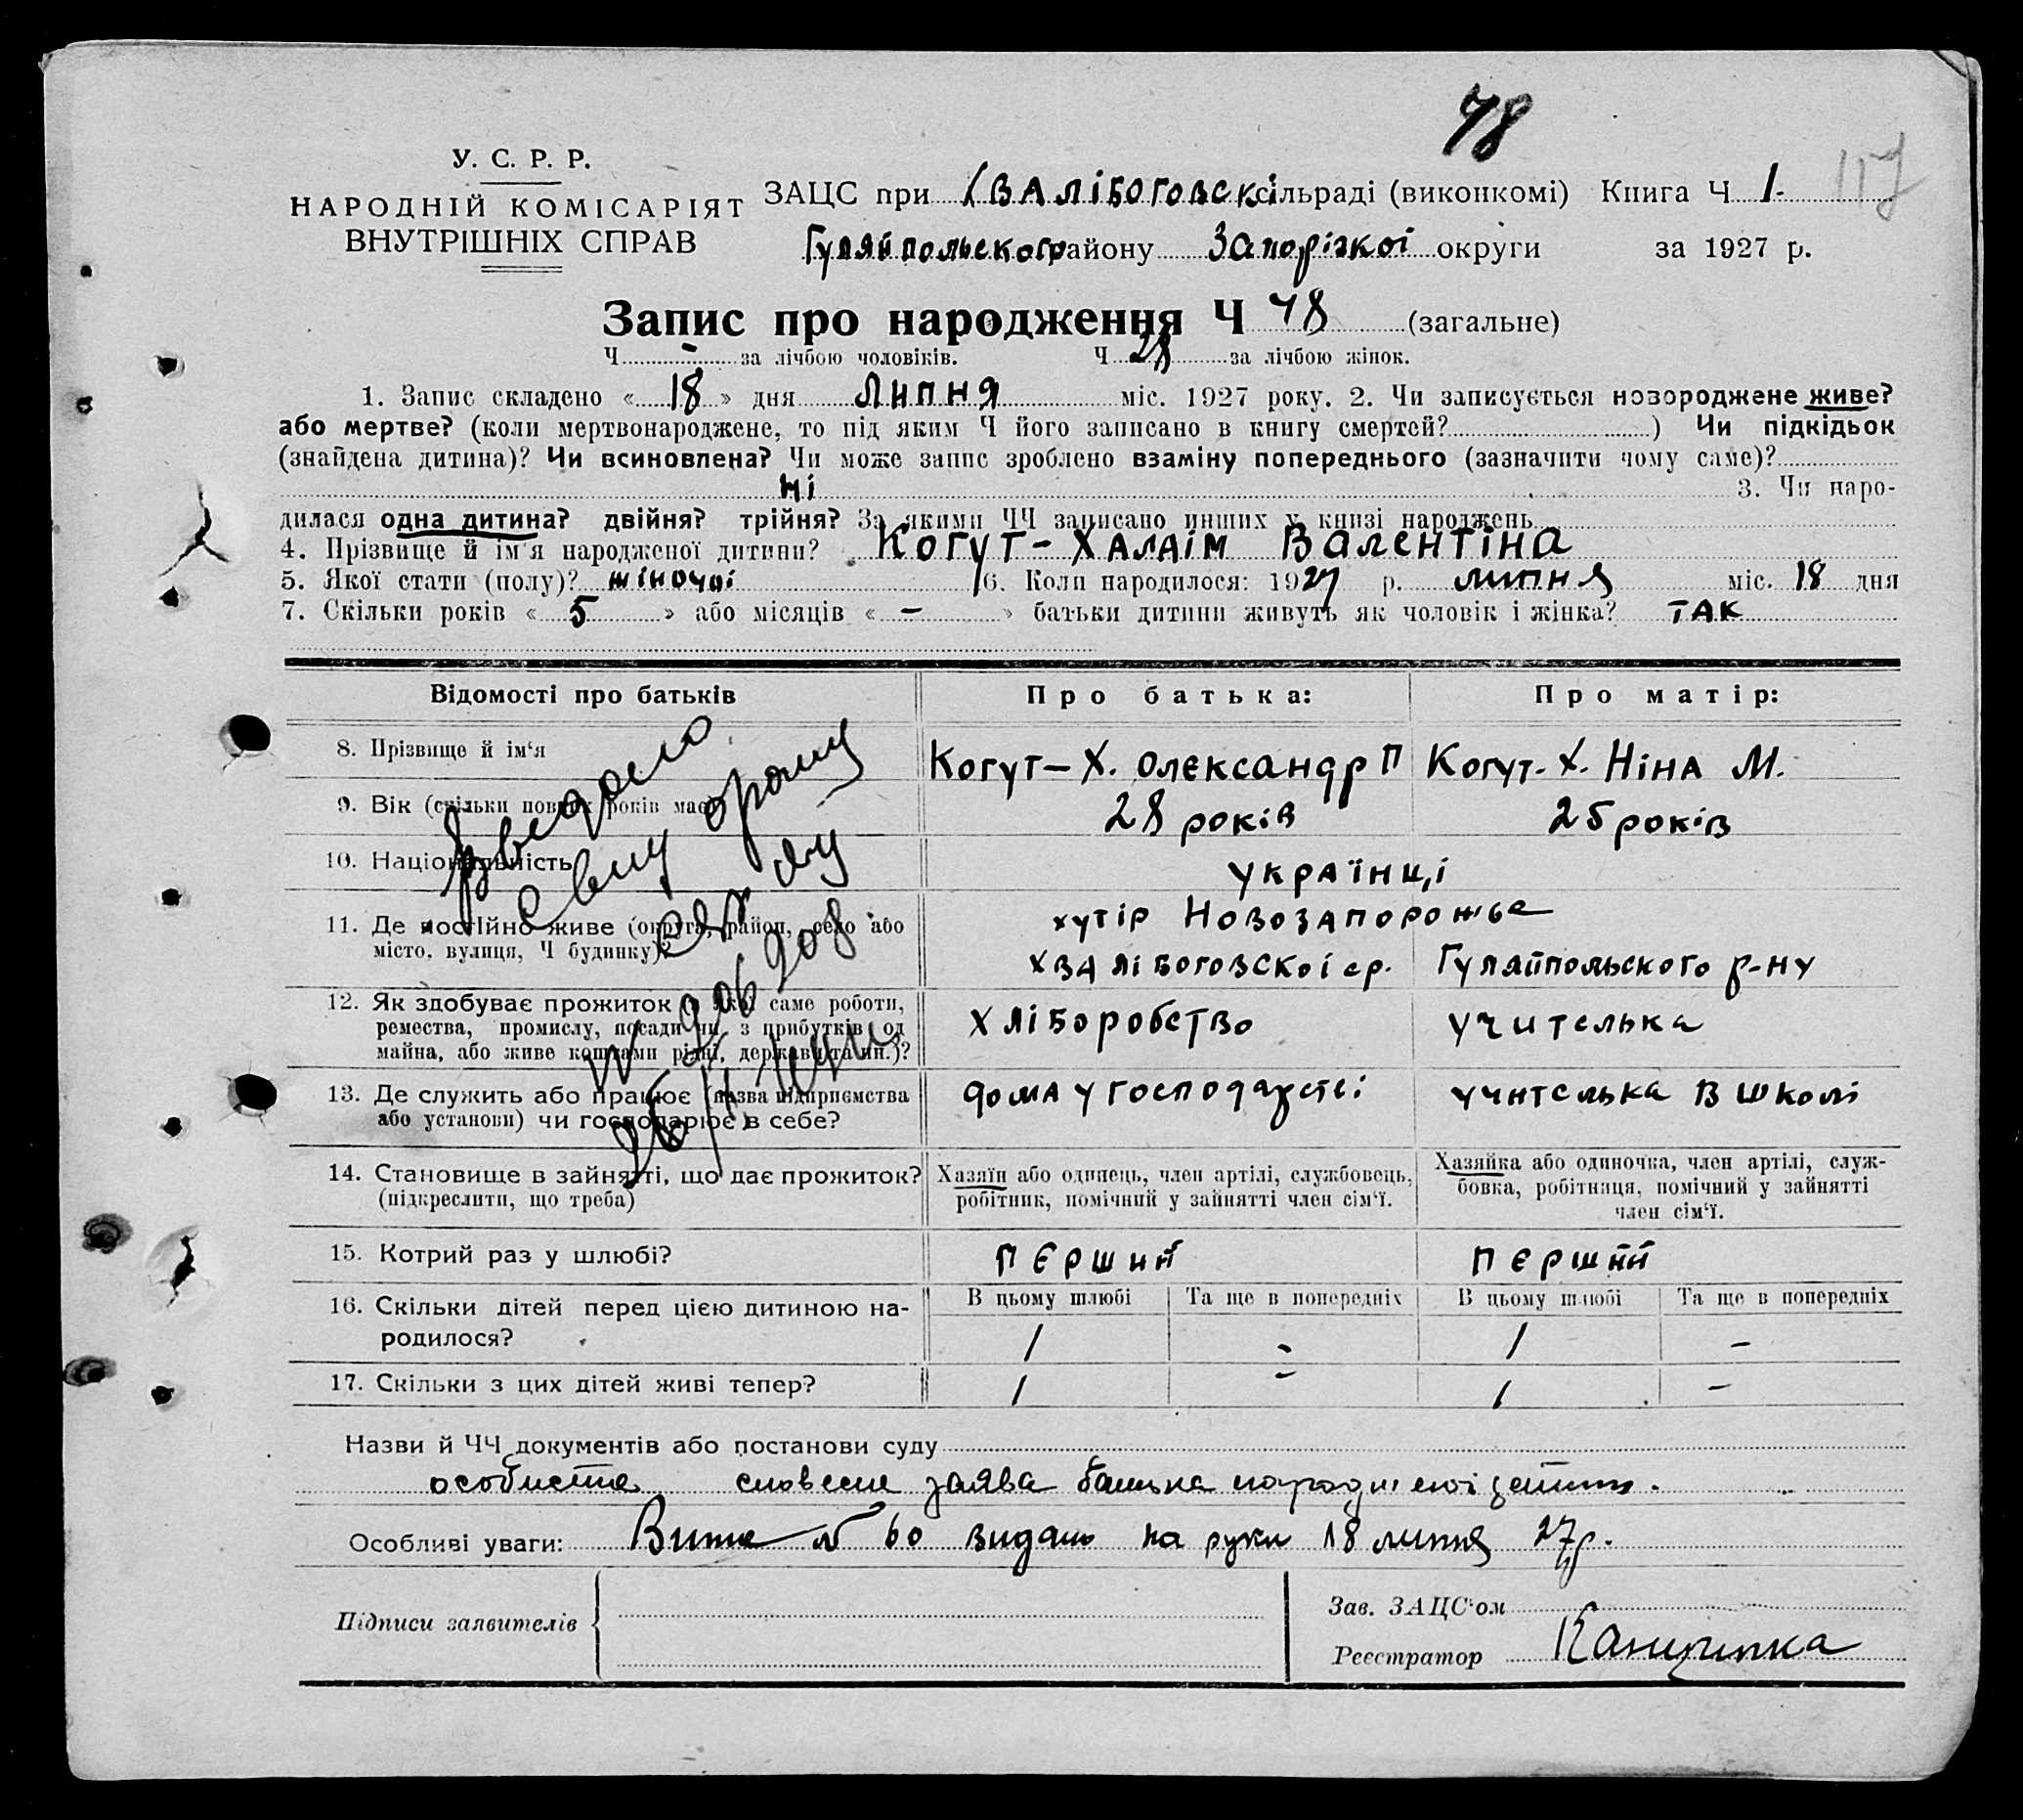 48
117
У. С. Р. Р.
НАРОДНІЙ КОМІСАРІЯТ
ВНУТРІШНІХ СПРАВ
ЗАЦС при Хвалібоговскі сільраді (виконкомі) Книга Ч 1.
Гуляйпольского району Запорізкої округи за 1927 р.
Запис про народження Ч 48 (загальне)
Ч - за лічбою чоловіків. Ч 28 за лічбою жінок.
1. Запис складено «18» дня Липня міс. 1927 року. 2. Чи записується новороджене живе?
або мертве? (коли мертвонароджене, то під яким Ч його записано в книгу смертей? ) Чи підкідьок
(знайдена дитина)? Чи всиновлена? Чи може запис зроблено взаміну попереднього (зазначити чому саме)?
ні 3. Чи наро-
дилася одна дитина? двійня? трійня? За якими ЧЧ записано инших у книзі народжень
4. Прізвище й ім'я народженої дитини? Когут-Халаім Валентіна
5. Якої стати (полу)? жіночої 6. Коли народилося: 1927 р. липня міс. 18 дня
7. Скільки років «5» або місяців «-» батьки дитини живуть як чоловік і жінка? так
Відомості про батьків Про батька: Про матір:
8. Прізвище й ім'я Когут-Х. Олександр П Когут-Х. Ніна М.
9. Вік (скільки повних років має) 28 років 25 років
10. Національність українці
11. Де постійно живе (округа, район, село або
місто, вулиця, Ч будинку)?
хутір Новозапорожье
Хвалібоговскоі ср. Гуляйпольского р-ну
12. Як здобуває прожиток (з якої саме роботи,
ремества, промислу, посади чи з прибутків од
майна, або живе коштами рідні, держави та ин.)?
хліборобство учителька
13. Де служить або працює (назва підприємства
або установи) чи господарює в себе?
дома у господарстві учителька в школі
14. Становище в зайнятті, що дає прожиток?
(підкреслити, що треба)
Хазяїн або одинець, член артілі, службовець,
робітник, помічний у зайнятті член сім'ї.
Хазяйка або одиночка, член артілі, служ-
бовка, робітниця, помічний у зайнятті
член сім'ї.
15. Котрий раз у шлюбі? перший перший
16. Скільки дітей перед цією дитиною на-
родилося?
В цьому шлюбі Та ще в попередніх В цьому шлюбі Та ще в попередніх
1 - 1 -
17. Скільки з цих дітей живі тепер? 1 - 1 -
Назви й ЧЧ документів або постанови суду
особиста словесна заява батька народженої дитини.
Особливі уваги: Витяг № 60 видано на руки 18 липня 27р.
Підписи заявителів
Зав. ЗАЦС'ом
Реєстратор